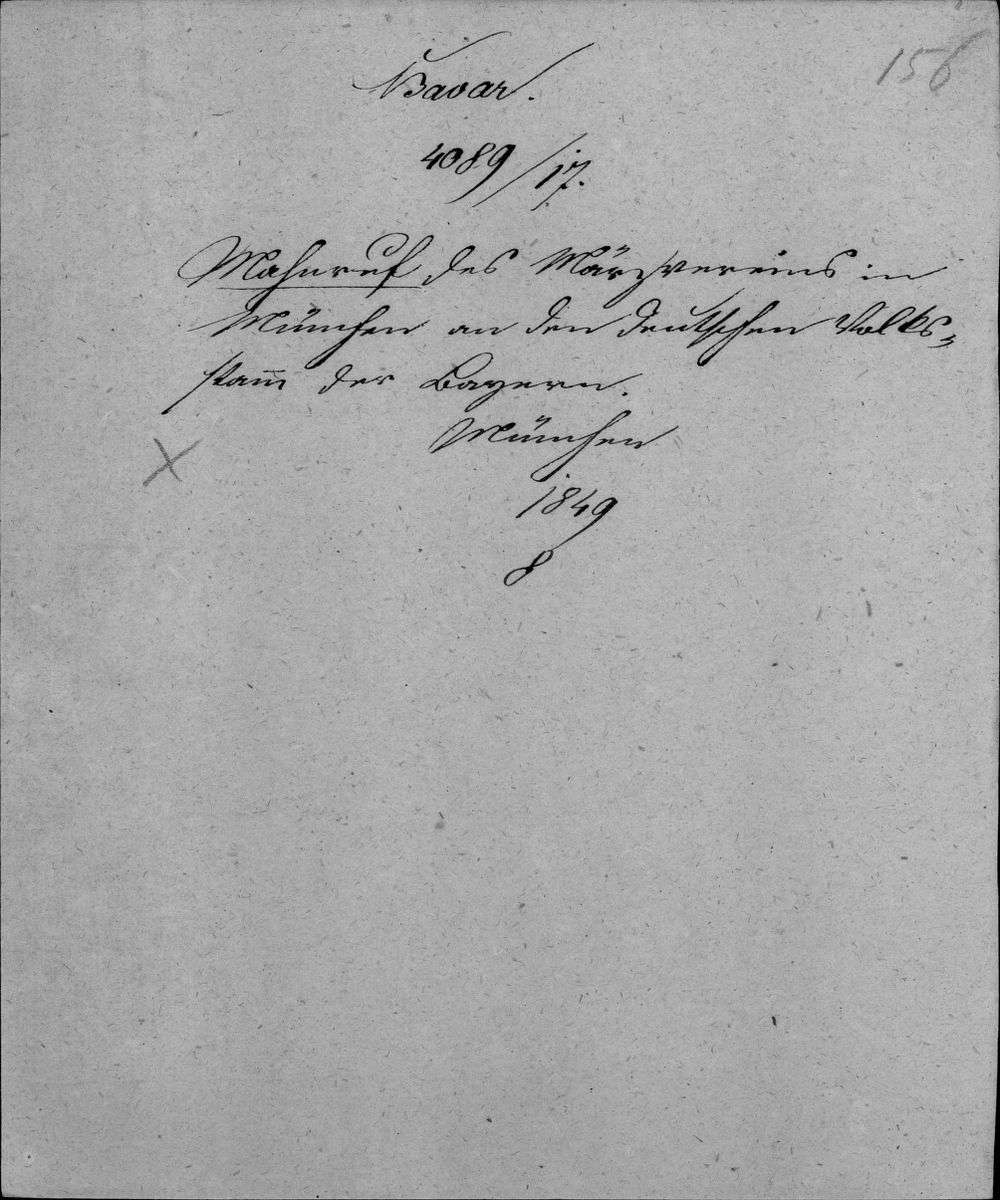 156
Bavar.
4089/17.
Mahnruf des Märzvereins in
München an den deutschen Volks-
stam̄ der Bayern.
München
1849
8
X